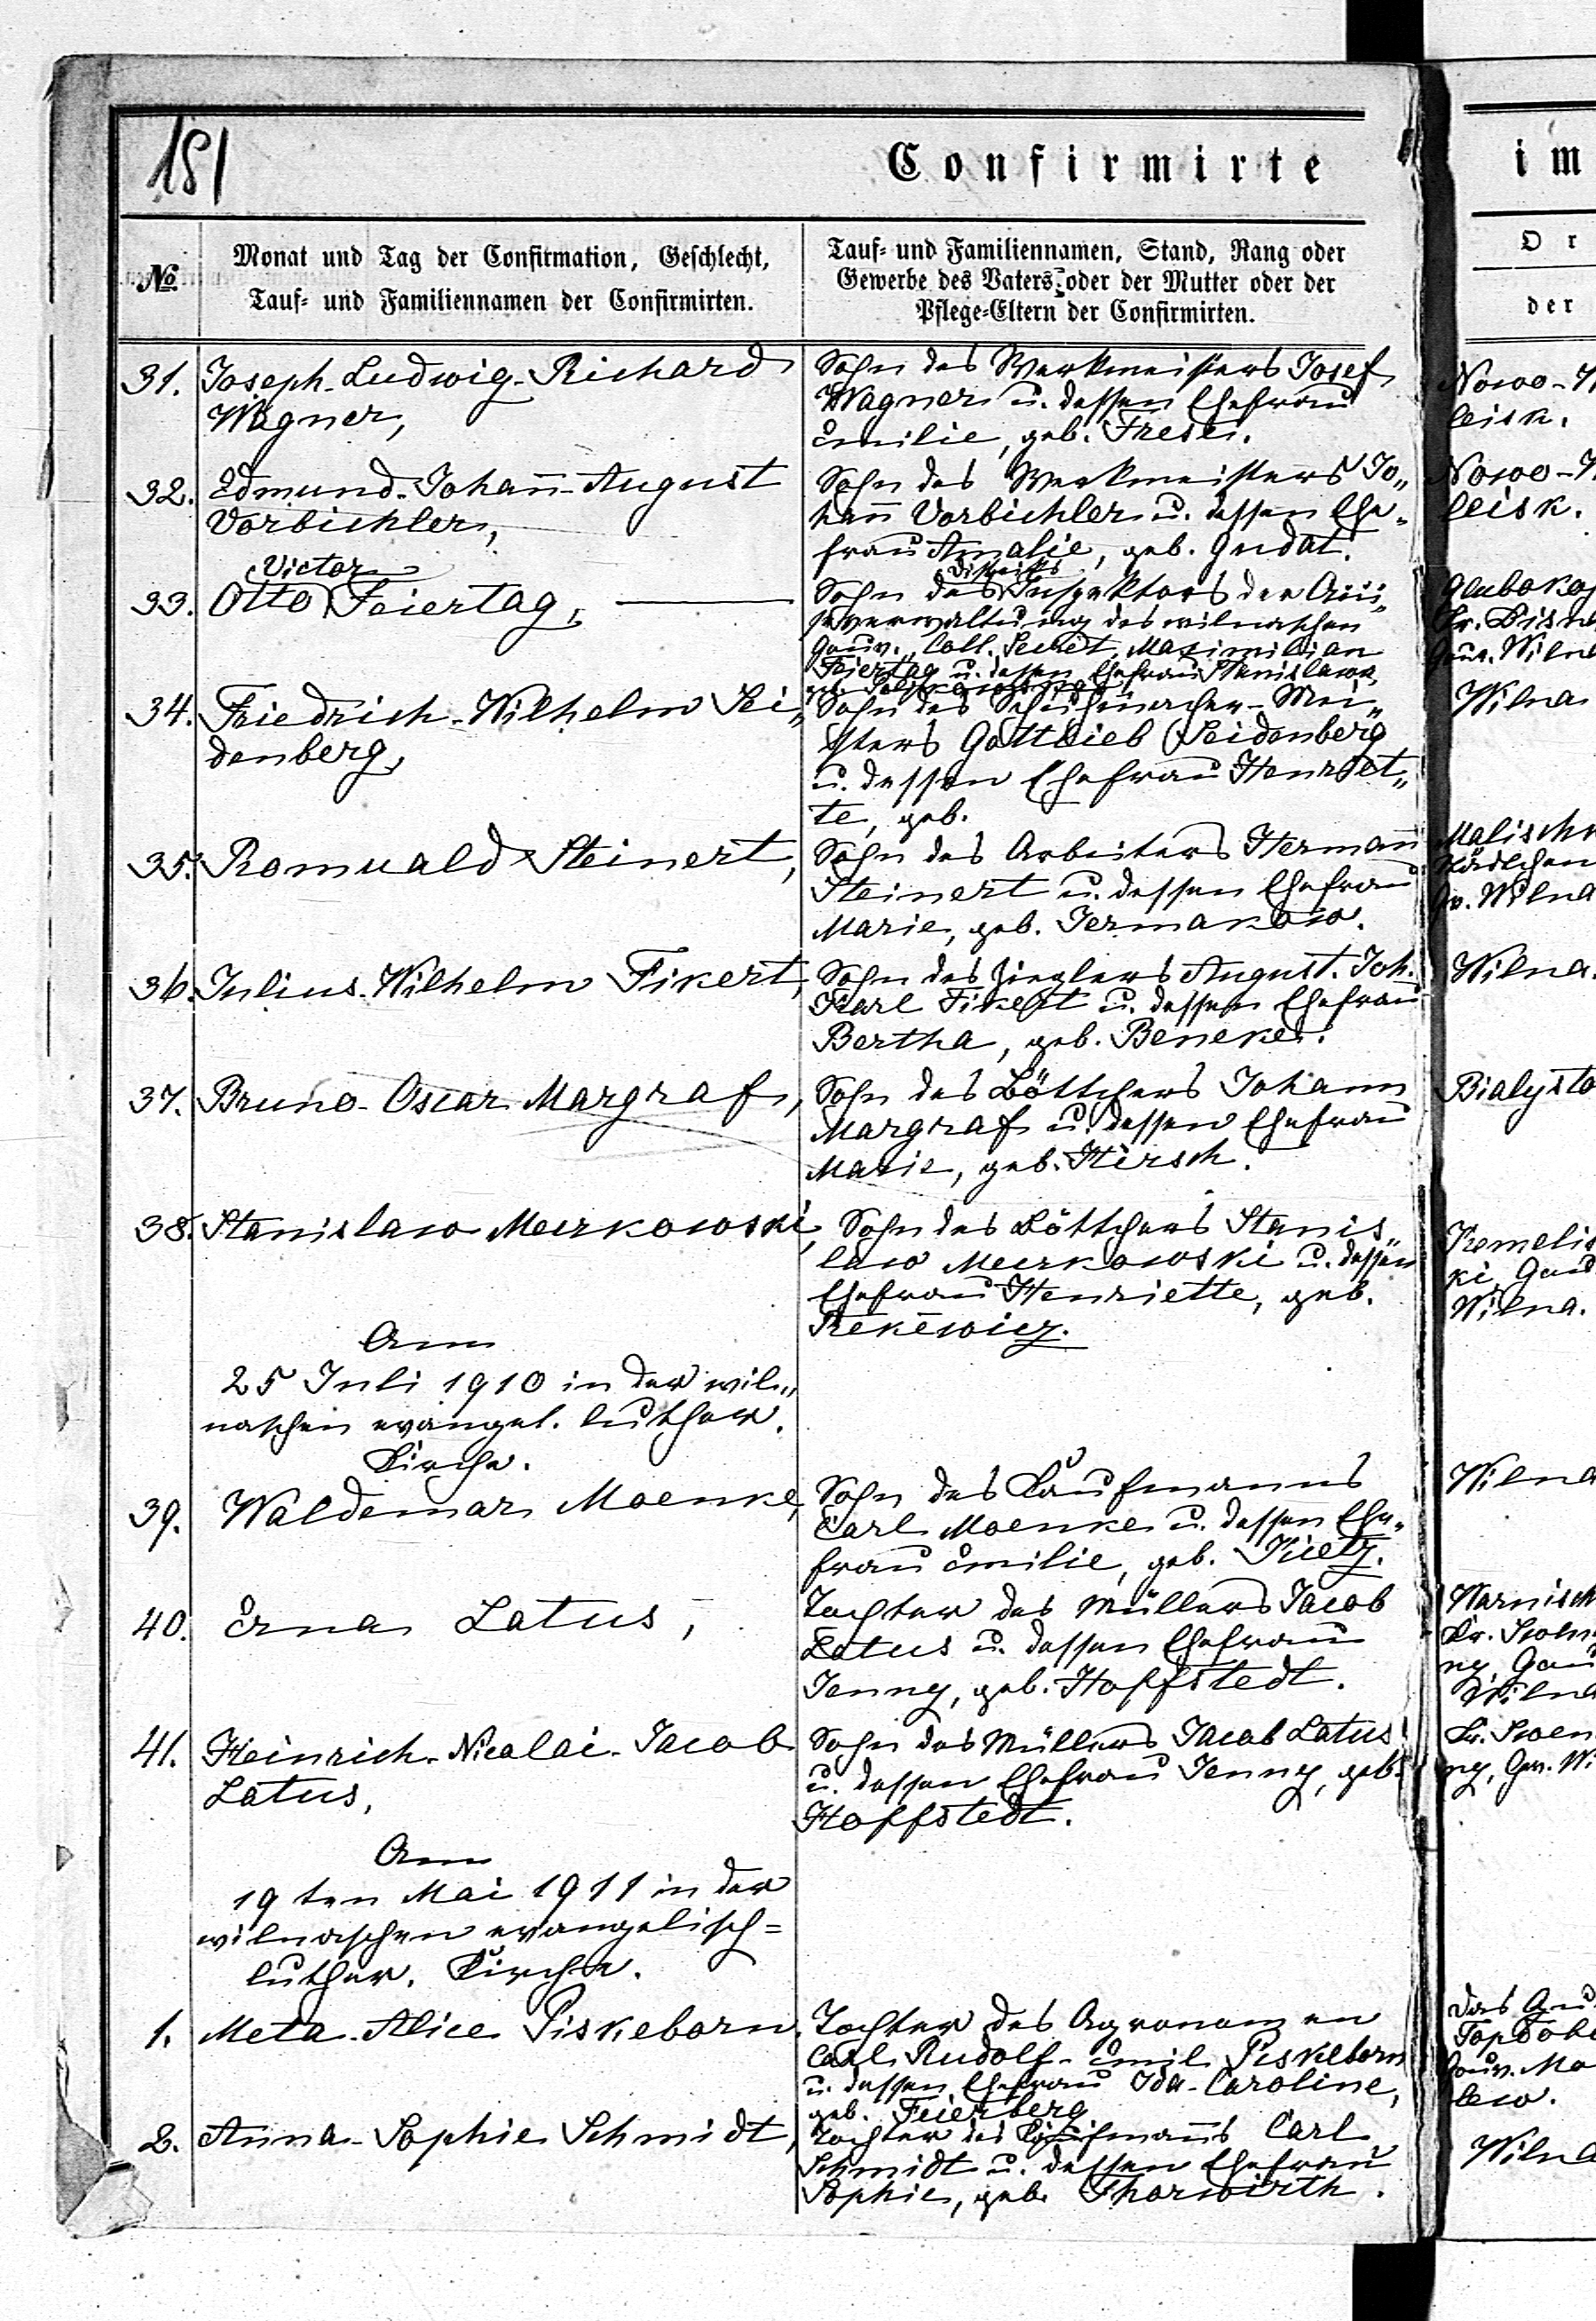 181
Confirmirte
im
No
Monat und Tag der Confirmation, Geschlecht,
Tauf- und Familiennamen der Confirmirten.
Tauf- und Familiennamen, Stand, Rang oder
Gewerbe des Vaters oder der Mutter oder der
Pflege-Eltern der Confirmirten.
Or
der
31. Joseph-Ludwig-Richard
Wagner,
Sohn des Werkmeisters Josef
Wagner u. dessen Ehefrau
Emilie, geb. Frese.
Nowo-W
leisk.
32. Edmund-Johan̄-August
Vorbichler,
Sohn des Werkmeisters Jo„
han̄ Vorbichler u. dessen Ehe„
frau Amalie, geb. Gudat.
Nowo-W
leisk.
Victor
33. Otto Feiertag,
Distrikts
Sohn des Inspektors der Acci„
severwaltung des wilnaschen
Gouv., Coll. Secret. Maximilian
Feiertag u. dessen Ehefrau Stanislawa,
geb.
Glubokoj
Kr. Disna
Gouv. Wilna
34. Friedrich-Wilhelm Sei„
denberg,
Sohn des Schuhmacher-Mei„
sters Gottlieb Seidenberg
u. dessen Ehefrau Henriet„
te, geb.
Wilna
35. Romuald Steinert,
Sohn des Arbeiters Herman̄
Steinert u. dessen Ehefrau
Marie, geb. Jermakow.
Malischk
Städtchen
Gv. Wilna
36. Julius-Wilhelm Fikert,
Sohn des Zieglers August-Joh.
Karl Fikert u. dessen Ehefrau
Bertha, geb. Beneke.
Wilna.
37. Bruno-Oscar Margraf,
Sohn des Böttchers Johann
Margraf u. dessen Ehefrau
Marie, geb. Hirsch.
Bialysto
38. Stanislaw Meerkowski,
Sohn des Böttchers Stanis„
law Meerkowski u. dessen
Ehefrau Henriette, geb.
ki, Gouv
Wilna.
Am
25 Juli 1910 in der wil„
naschen evangel. luther.
Kirche.
39. Waldemar Moenke,
Sohn des Kaufmanns
Carl Moenke u. dessen Ehe„
frau Emilie, geb. Kietz.
Wilna
40. Erna Latus,
Tochter des Müllers Jacob
Latus u. dessen Ehefrau
Jenny, geb. Hoffstedt.
Warnisch
ny, Gouv
Wilna
41. Heinrich-Nicolai-Jacob
Latus,
Sohn des Müllers Jacob Latus
u. dessen Ehefrau Jenny, geb.
Hoffstedt.
ny, Gv. Wi
Am
19ten Mai 1911 in der
wilnaschen evangelisch=
luther. Kirche.
1. Meta-Alice Piskeborn,
Tochter des Agronomen
Carl Rudolf-Emil Piskeborn
u. dessen Ehefrau Ida-Caroline,
geb. Feierberg
das Gu
Gouv. Mo
lew.
2. Anna-Sophie Schmidt,
Tochter des Kaufman̄s Carl
Schmidt u. dessen Ehefrau
Sophie, geb. Thorwirth.
Wilna